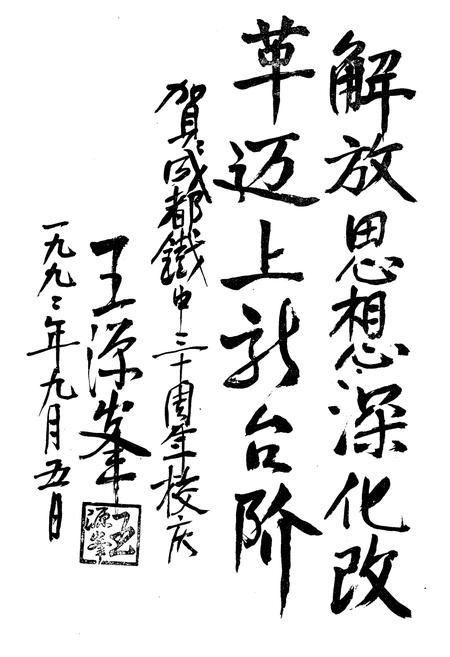 解放思想深化改
革迈上新台阶
賀成都鐵中三十周年校庆
王源峯
一九九二年九月五日
王源峯